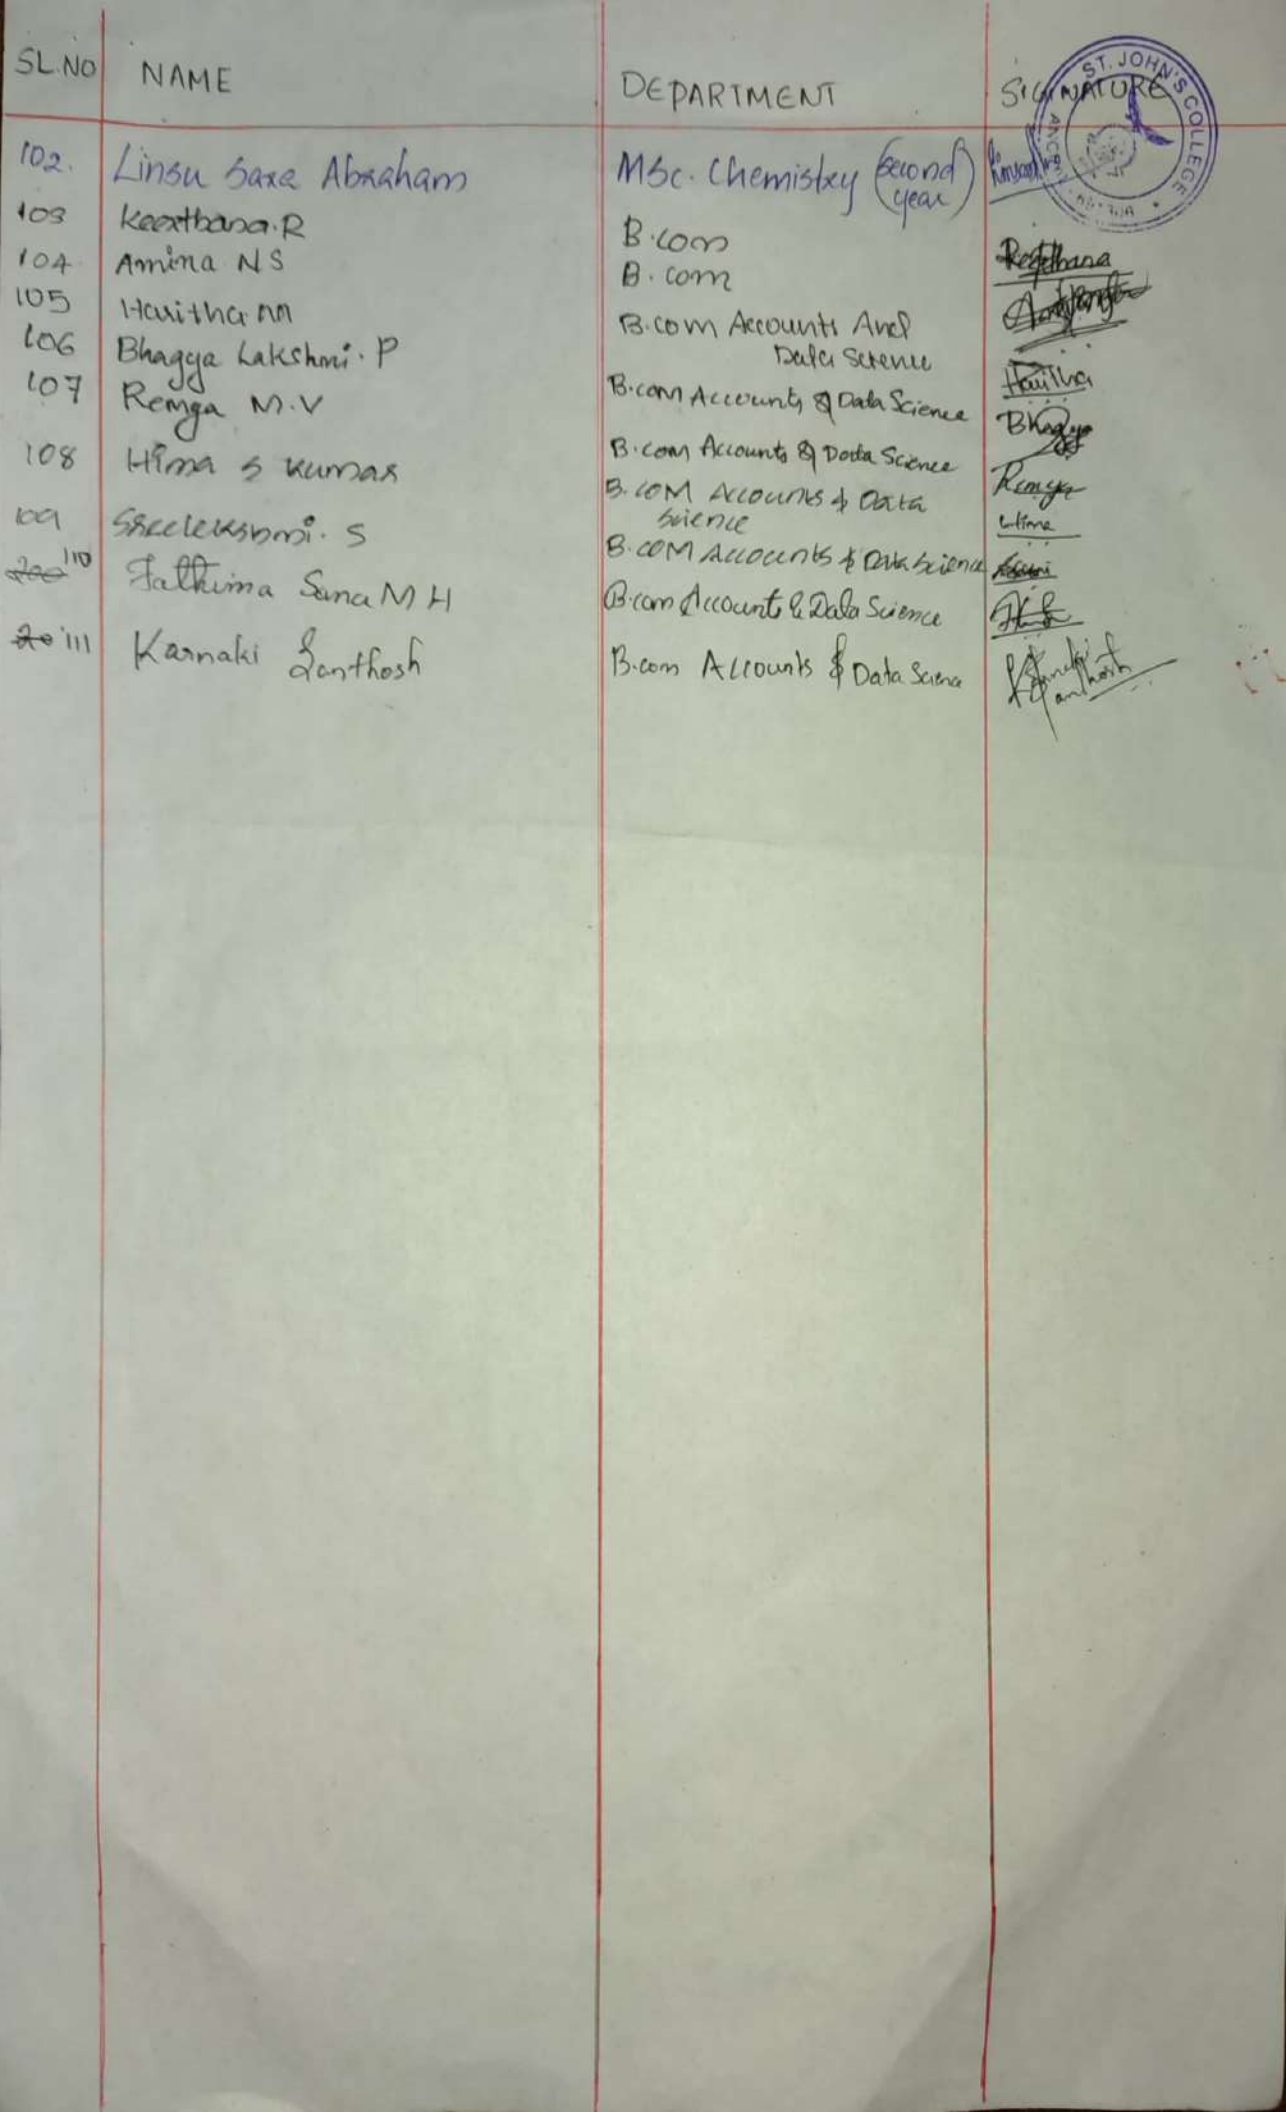 SL.NO NAME DEPARTMENT SIGNATURE
ST. JOHN'S COLLEGE
102. Linsu Sara Abraham MSc. Chemistry (Second year)
103 Keerthana.R B.com Keerthana
104 Amina NS B.com
105 Haritha M B.com Accounts And Data Science Haritha
106 Bhagya Lakshmi.P B.com Accounts & Data Science Bhagya
107 Remya M.V B.com Accounts & Data Science Remya
108 Hima S Kumar B.COM Accounts & Data Science Hima
109 Sreelekshmi.S B.COM Accounts & Data Science
110 Fathima Sana M H B.com Accounts & Data Science
111 Karnaki Santhosh B.com Accounts & Data Science Karnaki Santhosh